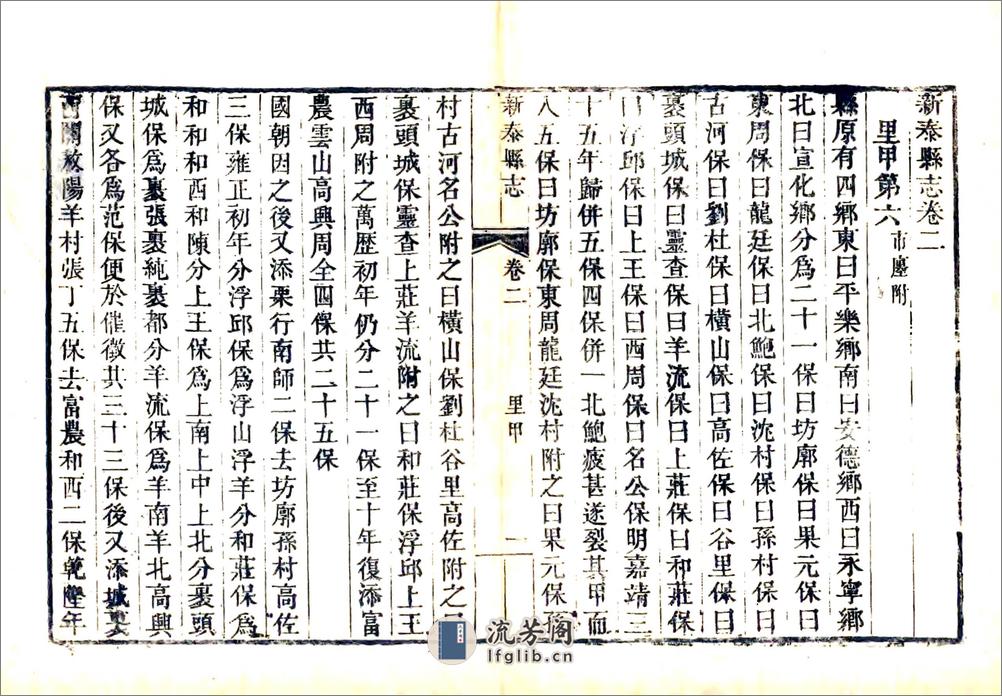 新泰縣志卷二
里甲第六市廛附
縣原有四鄉東曰平樂鄉南曰安德鄉西曰永寧鄉
北曰宣化鄉分爲二十一保曰坊廓保曰果元保曰
東周保曰龍廷保曰北鮑保曰沈村保曰孫村保曰
古河保曰劉杜保曰橫山保曰高佐保曰谷里保曰
褁頭城保曰靈查保曰羊流保曰上莊保曰和莊保
曰浮邱保曰上王保曰西周保曰名公保明嘉靖三
十五年歸併五保四保併一北鮑疲甚遂裂其甲而
八五保曰坊廓保東周龍廷沈村附之曰果元保孫
新泰縣志
卷二
里甲
一
村古河名公附之曰橫山保劉杜谷里高佐附之曰
褁頭城保靈查上莊羊流附之曰和莊保浮邱上王
西周附之萬歷初年仍分二十一保至十年復添富
農雲山高興周全四保共二十五保
國朝因之後又添栗行南師二保去坊廓孫村高佐
三保雍正初年分浮邱保爲浮山浮羊分和莊保爲
和和和西和陳分上王保爲上南上中上北分褁頭
城保爲褁張褁純褁都分羊流保爲羊南羊北高興
保又各爲范保便於催徵共三十三保後又添城東
西關敖陽羊村張丁五保去富農和西二保乾隆年
流芳阁
lfglib.cn